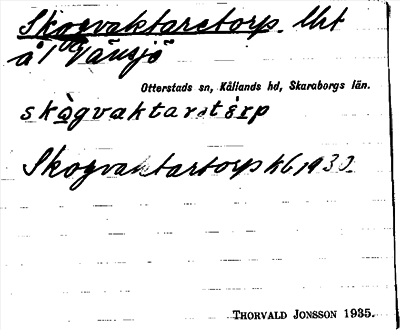 Skogvaktaretorp. Lht
å 1/0 Vänsjö
Otterstads sn, Kållands hd, Skaraborgs län.
skògvaktarətòrp
Skogvaktartorp kb 1930
THORVALD JONSSON 1935.